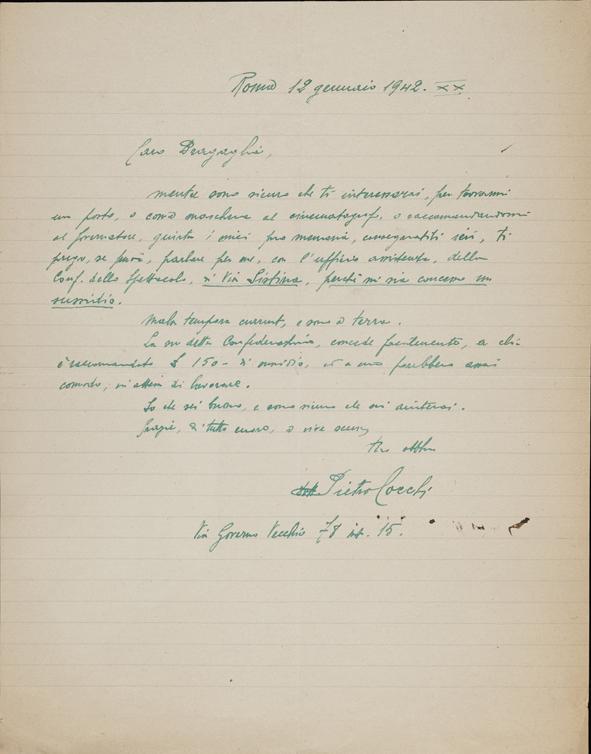 Roma 12 gennaio 1942. XX
Caro Bragaglia,
mentre sono sicuro che ti interesserai, per trovarmi
un posto, o come maschera al cinematografo, o raccomandandomi
al Governatore, giusta i miei pro memoria, consegnatiti ieri, ti
prego, se puoi, parlare per me, con l'ufficio assistenza, della
Conf. dello Spettacolo, di Via Sistina, perché mi sia concesso un
sussidio.
Mala tempora currunt, e sono a terra.
La su detta Confederazione, concede facilmente, a chi
è raccomandato £ 150 - di sussidio, ed a me farebbero assai
comodo, in attesa di lavorare.
So che sei buono, e sono sicuro che mi aiuterai.
Grazie, di tutto cuore, e vive scuse,
tuo
Pietro Cocchi
Via Governo Vecchio 78 int. 15.